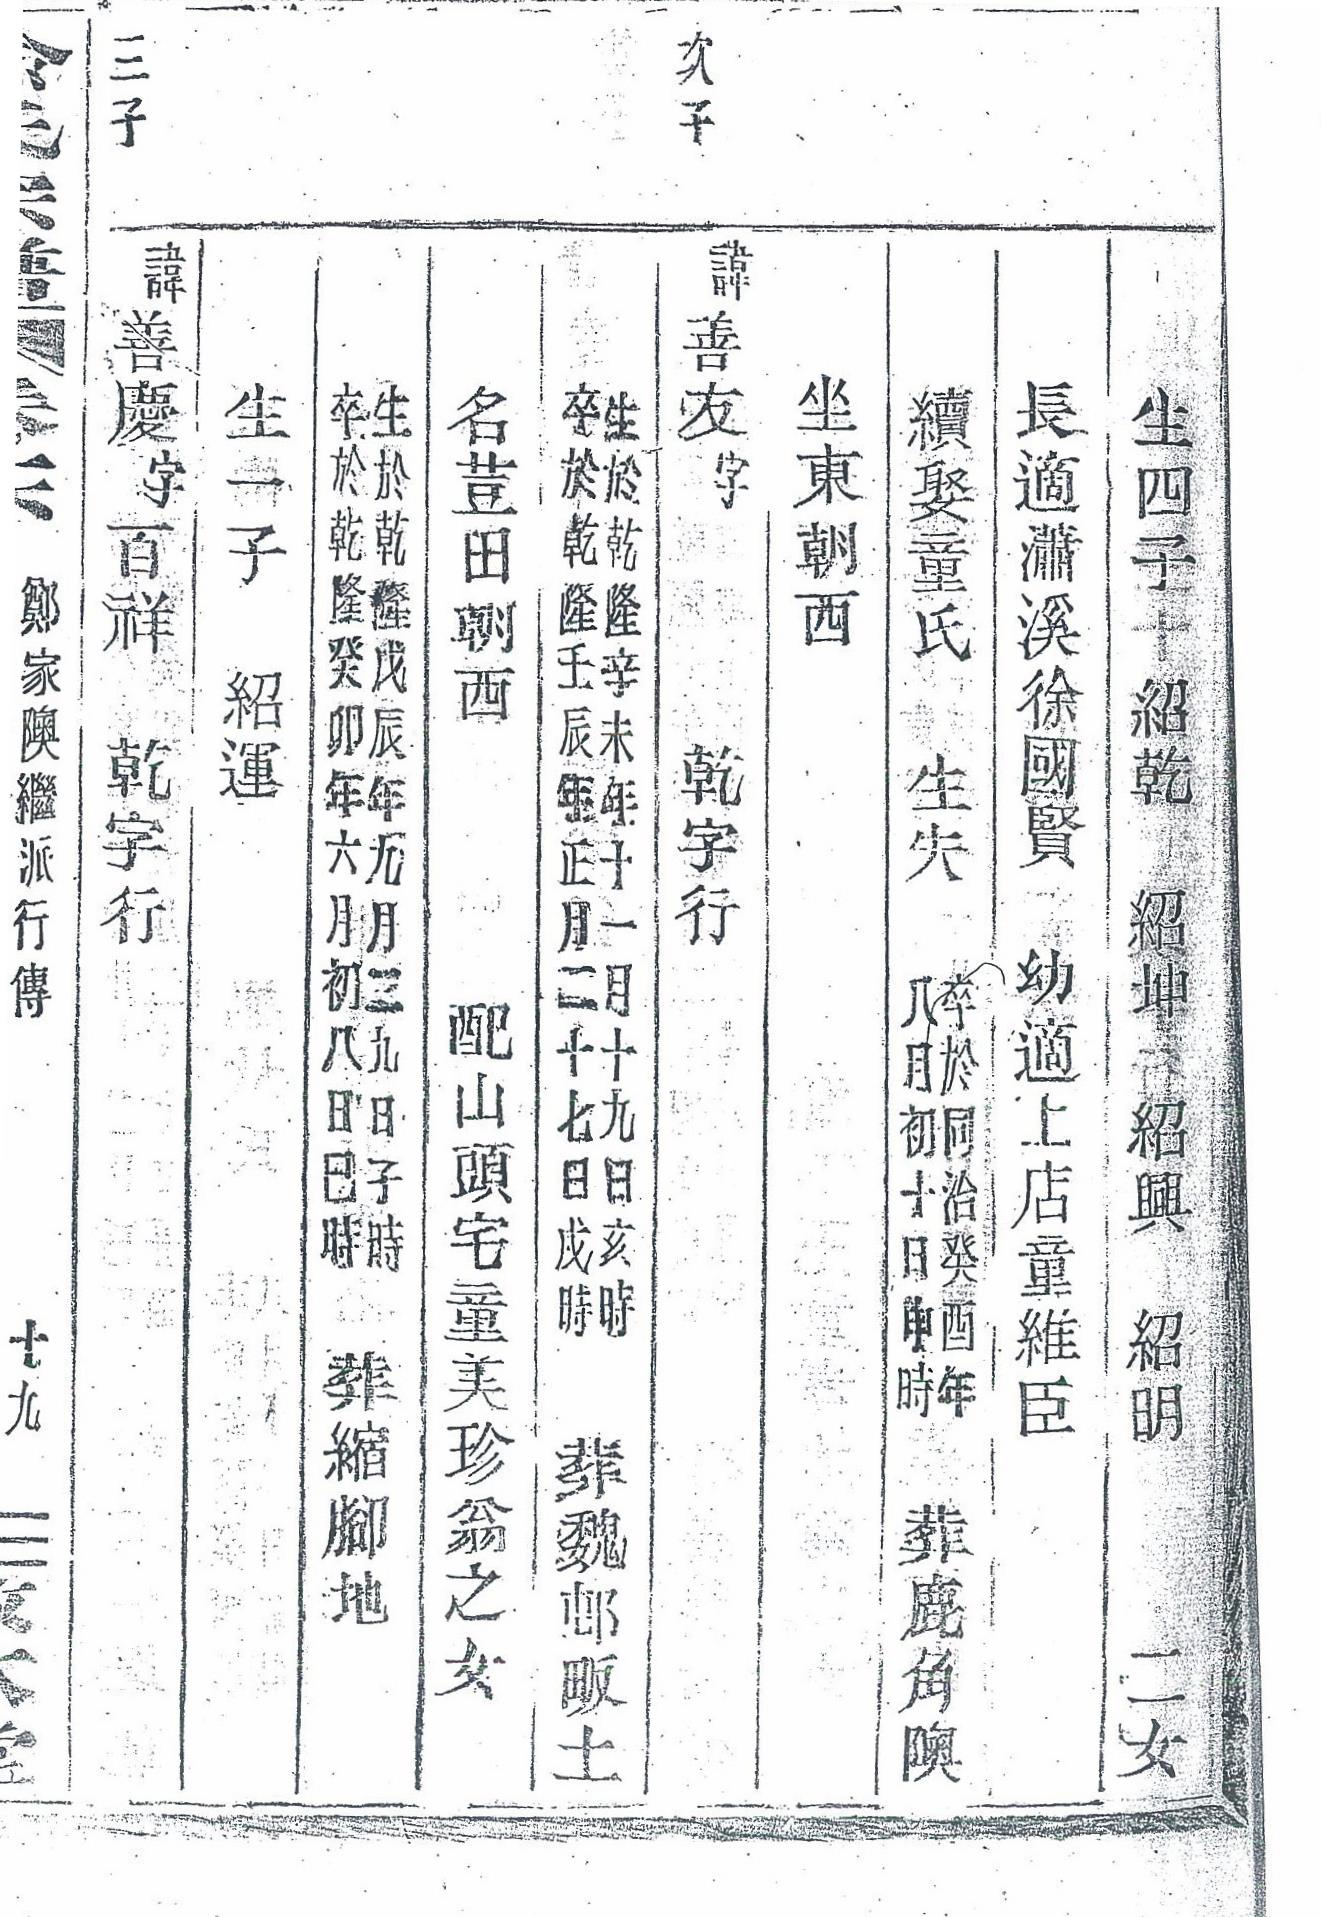 生四子 紹乾 紹坤 紹興 紹明 二女
長適瀟溪徐國賢 幼適上店童維臣
續娶童氏 生失 卒於同治癸酉年八月初十日申時 葬鹿角隩
坐東朝西
次子
諱善友字 乾字行
生於乾隆辛未年十一月十九日亥時
卒於乾隆壬辰年正月二十七日戌時 葬魏邨畈土
名荳田朝西 配山頭宅童美珍翁之女
生於乾隆戊辰年九月三九日子時
卒於乾隆癸卯年六月初八日巳時 葬縮腳地
生一子 紹運
三子
諱善慶字百祥 乾字行
鄭家隩繼派行傳 十九